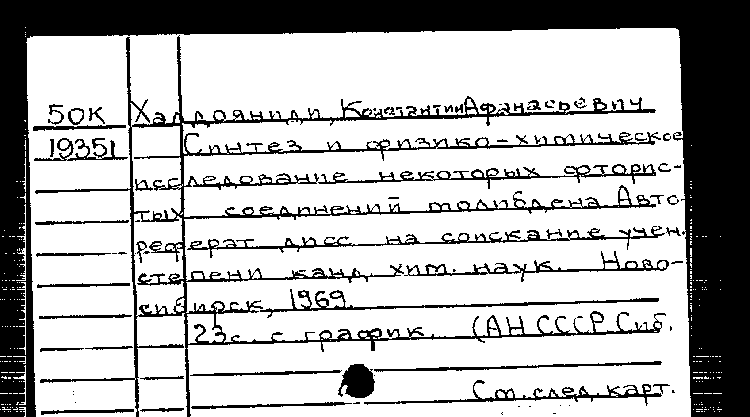 50К Халдояниди, Константин Афанасьевич
19351 Синтез и физико-химическое
исследование некоторых фторис-
тых соединений молибдена Авто-
реферат дисс на соискание учен.
степени канд. хим. наук. Ново-
сибирск, 1969.
23с. с график. (АН СССР Сиб.
См. след. карт.